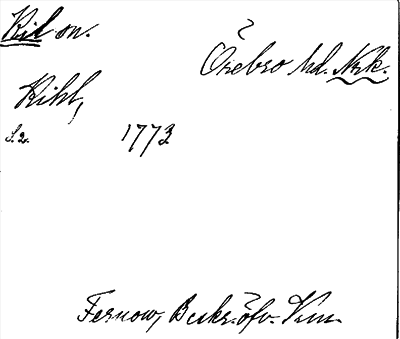 Kil sn.
Örebro hd. Nrk.
Kihl,
S. 2. 1773
Fernow, Beskr. öfv. Vrm.